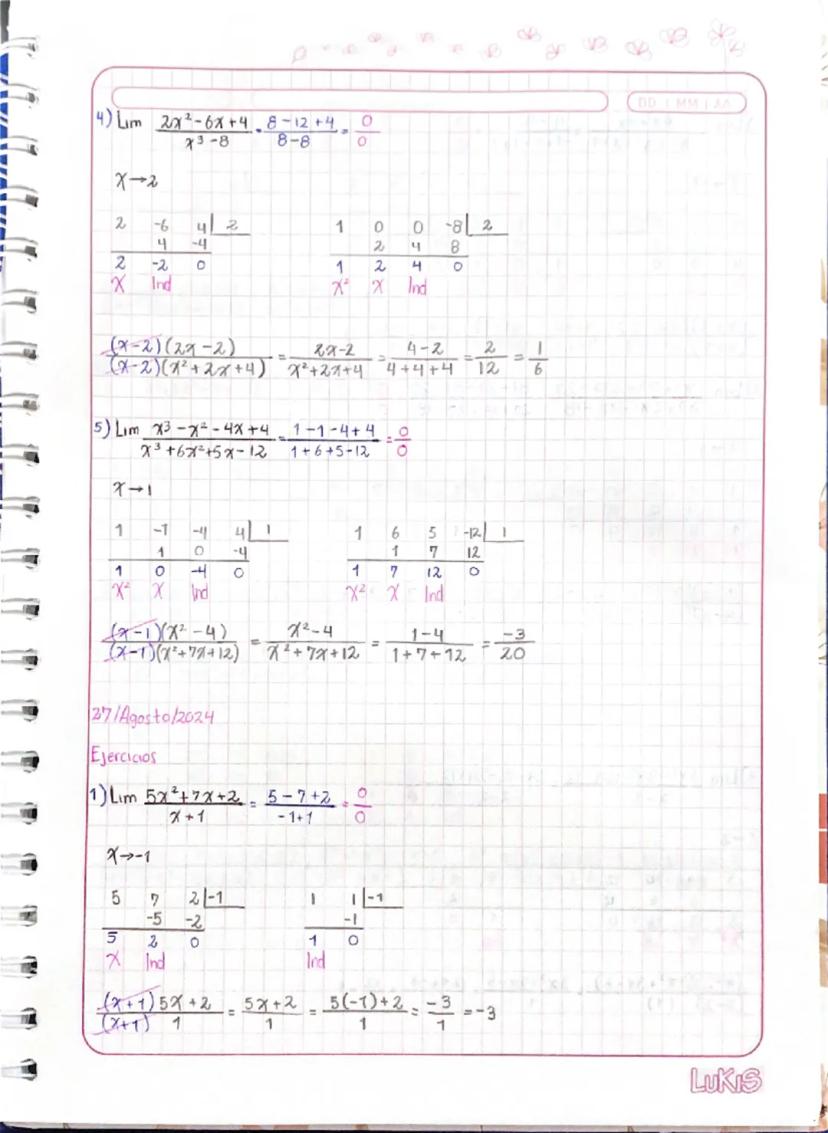 DD | MM | AA
4) Lim (2x²-6x+4)/(x³-8) = (8-12+4)/(8-8) = 0/0
x→2
2 -6 4 | 2 1 0 0 -8 | 2
4 -4 2 4 8
2 -2 0 1 2 4 0
x Ind x² x Ind
((x-2)(2x-2))/((x-2)(x²+2x+4)) = (2x-2)/(x²+2x+4) = (4-2)/(4+4+4) = 2/12 = 1/6
5) Lim (x³-x²-4x+4)/(x³+6x²+5x-12) = (1-1-4+4)/(1+6+5-12) = 0/0
x→1
1 -1 -4 4 | 1 1 6 5 -12 | 1
1 0 -4 1 7 12
1 0 -4 0 1 7 12 0
x² x Ind x² x Ind
((x-1)(x²-4))/((x-1)(x²+7x+12)) = (x²-4)/(x²+7x+12) = (1-4)/(1+7+12) = -3/20
27/Agosto/2024
Ejercicios
1) Lim (5x²+7x+2)/(x+1) = (5-7+2)/(-1+1) = 0/0
x→-1
5 7 2 | -1 1 1 | -1
-5 -2 -1
5 2 0 1 0
x Ind Ind
((x+1) 5x+2)/((x+1) 1) = (5x+2)/1 = (5(-1)+2)/1 = -3/1 = -3
LuKiS